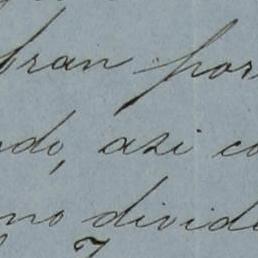 bran por
ndo, asi co
no divide